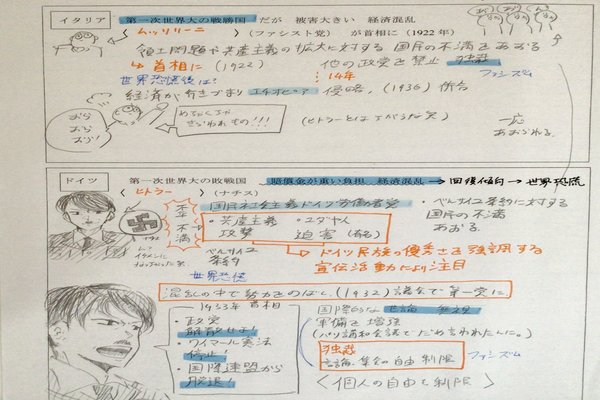 イタリア 第一次世界大の戦勝国 だが 被害大きい 経済混乱
(ムッソリーニ)(ファシスト党)が首相に(1922年)
領土問題や共産主義の拡大に対する 国民の不満をあおる
↳首相に(1922) 他の政党を禁止 独裁
ファシズム
世界恐慌後は? 14年
経済が行きづまり エチオピア 侵略、(1936)併合
おら
おら
おら!
きらわれもの!!!
(ヒトラーとは
一応
あおられる。
ドイツ 第一次世界大の敗戦国 賠償金が重い負担 経済混乱 → 回復傾向 → 世界恐慌
(ヒトラー)(ナチス)
国民社会主義ドイツ労働者党
不平 不満
・共産主義 攻撃
・ユダヤ人 迫害
・ベルサイユ条約に対する
国民の不満
あおる。
ベルサイユ
条約
→ドイツ民族の優秀さを強調する
宣伝活動により注目
世界恐慌
混乱の中で勢力をのばし、(1932)議会で第一党に
1933年首相
・政党
解散させる!
・ワイマール憲法
停止!
・国際連盟から
脱退!
国際的な世論 無視
軍備を増強
(パリ講和会議でだめ言われたんに。)
独裁
言論、集会の自由 制限
ファシズム
<個人の自由を制限>